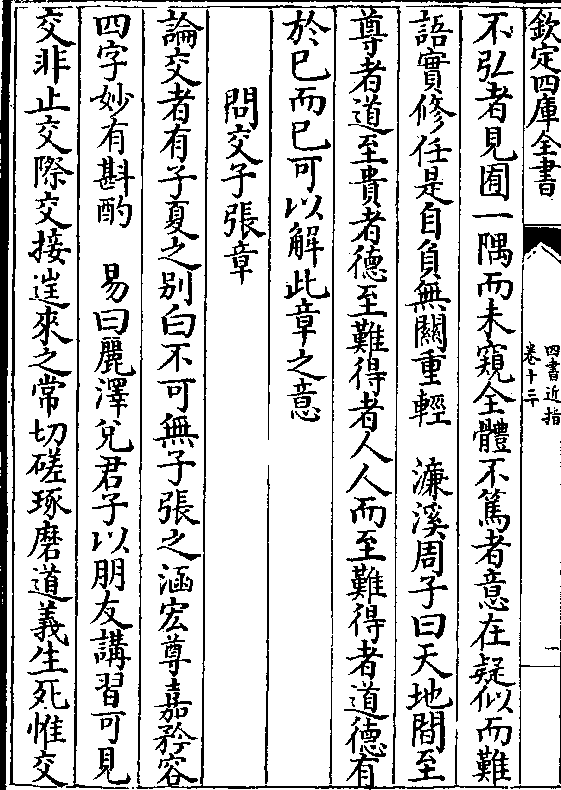 欽定四庫全書
四書近指
卷十三
一
不弘者見囿一隅而未窺全體不篤者意在疑似而難
語實修任是自負無關重輕　濂溪周子曰天地間至
尊者道至貴者德至難得者人人而至難得者道德有
於已而已可以解此章之意
問交子張章
論交者有子夏之別白不可無子張之涵宏尊嘉矜容
四字妙有斟酌　易曰麗澤兌君子以朋友講習可見
交非止交際交接逞來之常切磋琢磨道義生死惟交